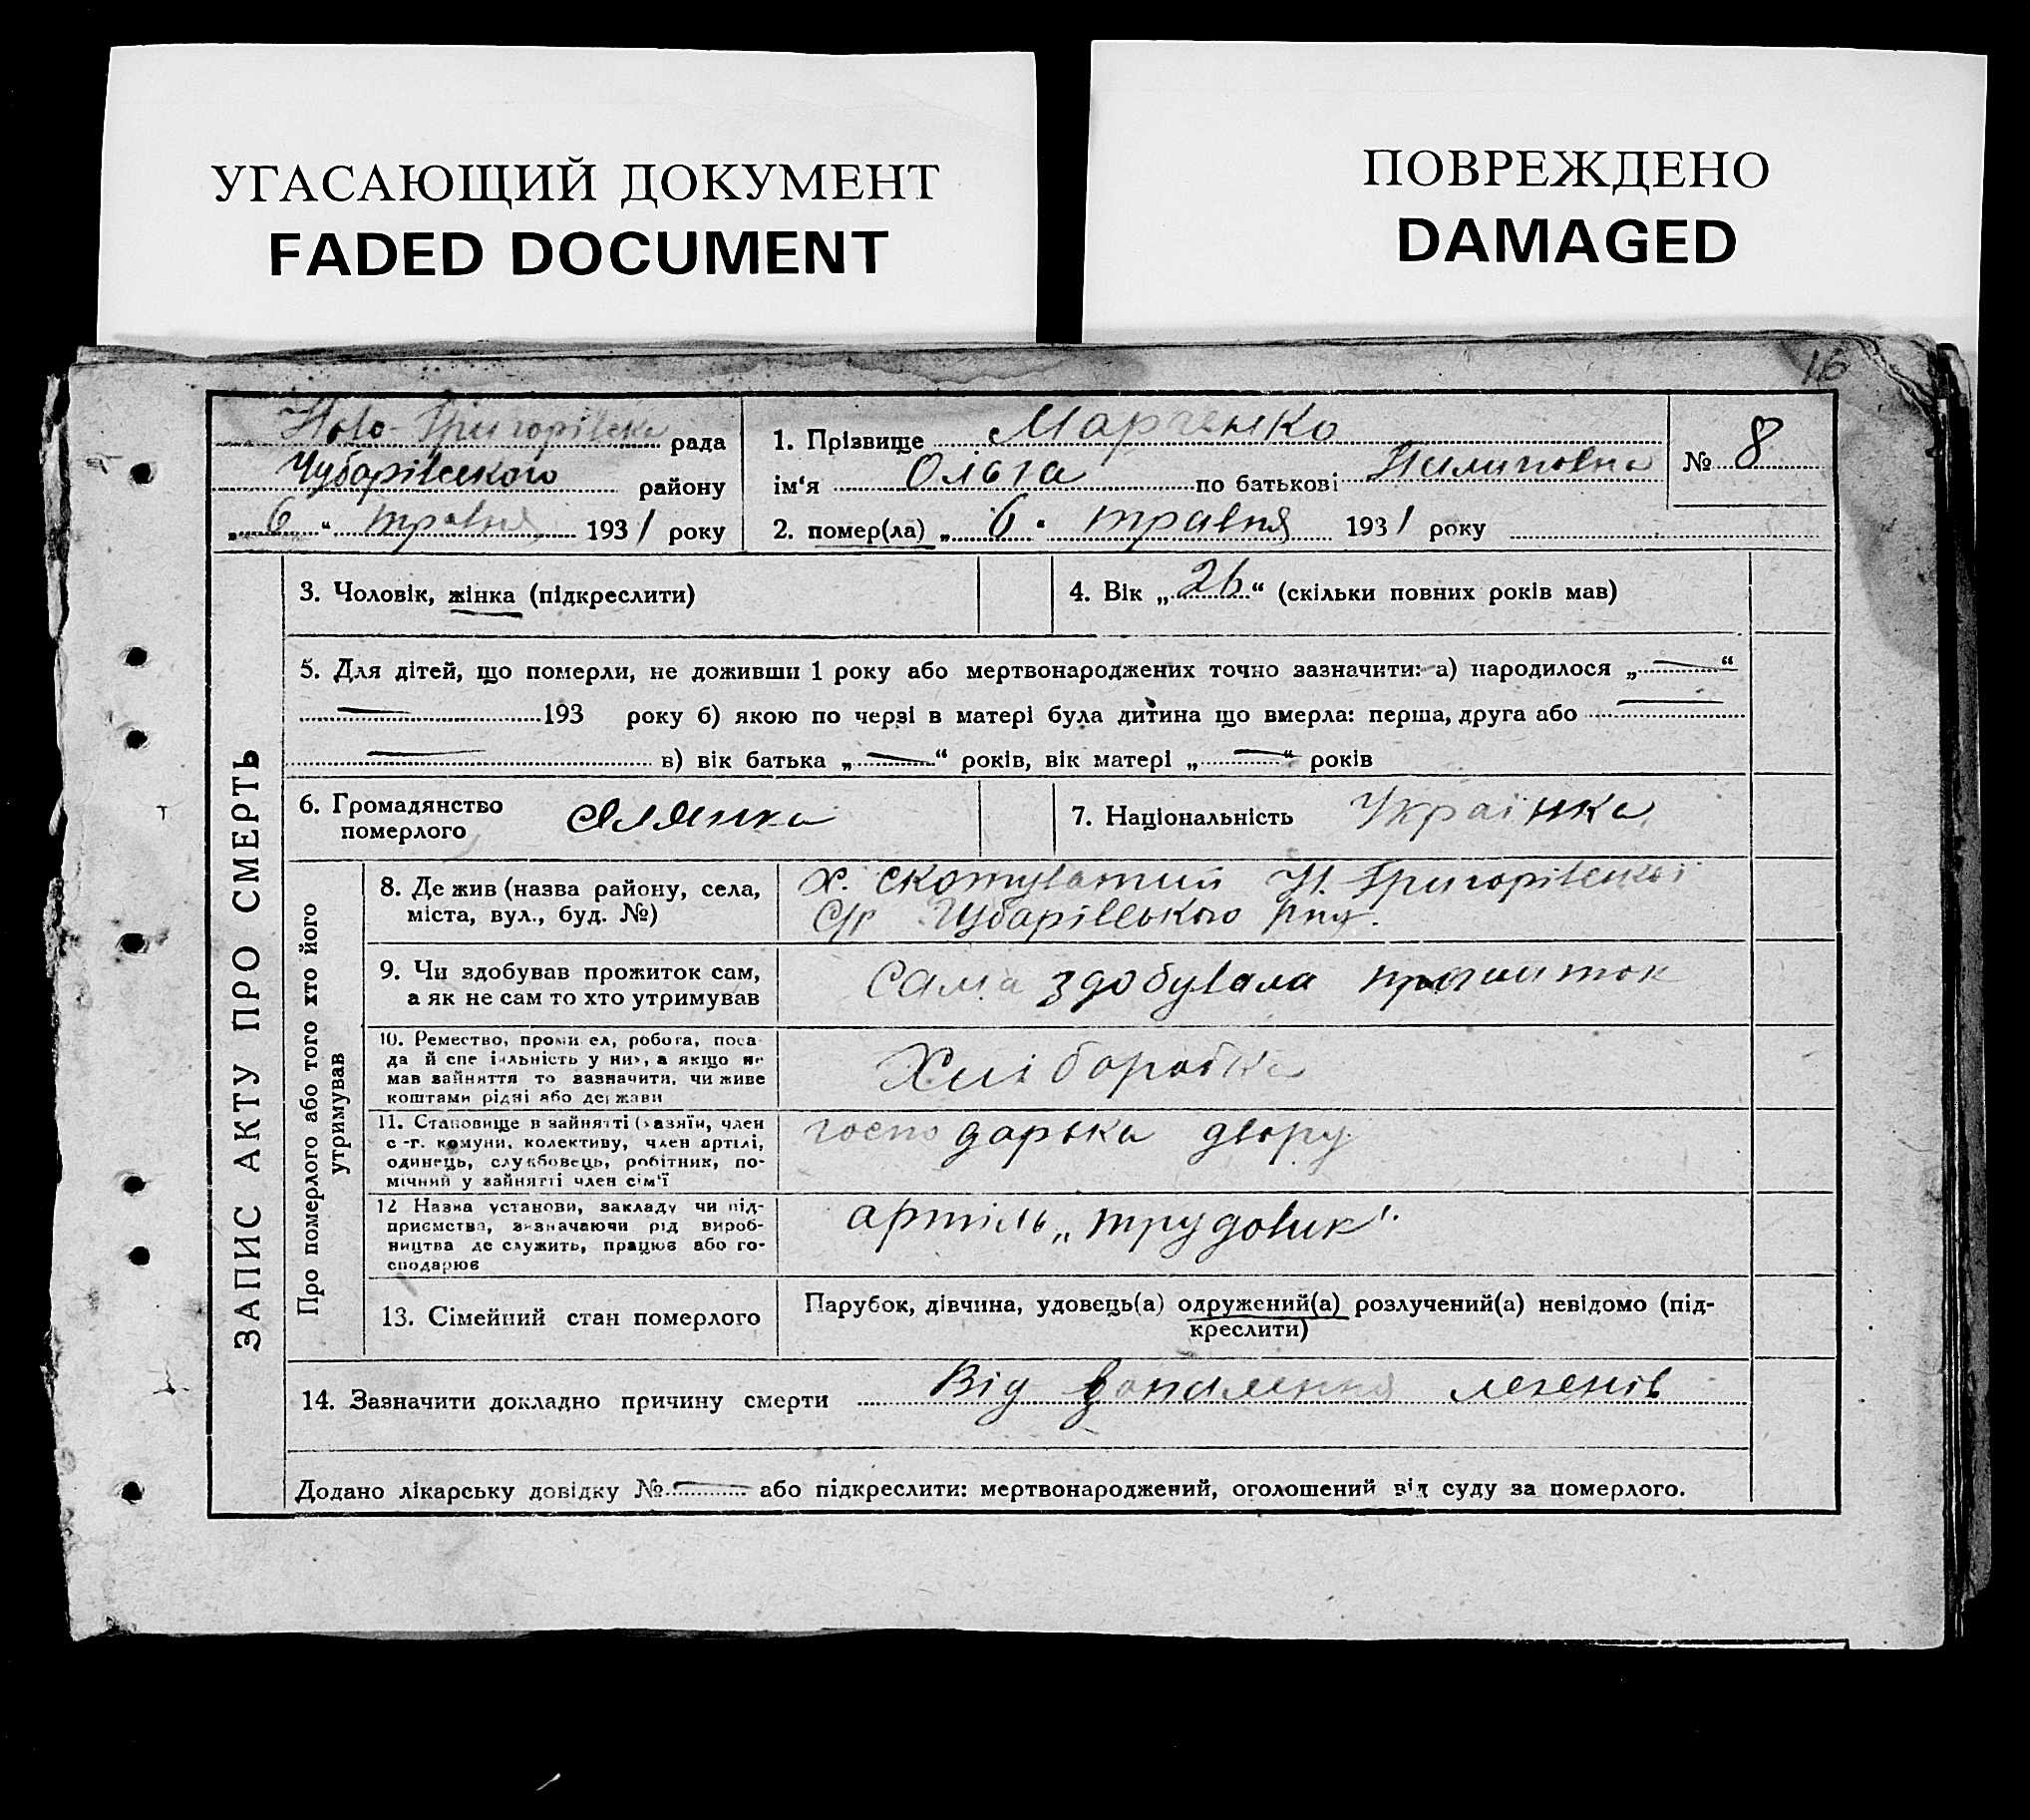 УГАСАЮЩИЙ ДОКУМЕНТ
FADED DOCUMENT
ПОВРЕЖДЕНО
DAMAGED
16
Ново-Григорівська рада
Чубарівського району
„6“ травня 1931 року
1. Прізвище Марченко
ім'я Ольга по батькові Пилиповна
№ 8
2. помер(ла) „6" травня 1931 року
ЗАПИС АКТУ ПРО СМЕРТЬ
3. Чоловік, жінка (підкреслити)
4. Вік „26“ (скільки повних років мав)
5. Для дітей, що померли, не доживши 1 року або мертвонароджених точно зазначити: а) народилося „—“
— 193 року б) якою по черзі в матері була дитина що вмерла: перша, друга або —
— в) вік батька „—“ років, вік матері „—“ років
6. Громадянство
померлого
7. Національність Українка
Про померлого або того хто його
утримував
8. Де жив (назва району, села,
міста, вул., буд. №)
х. Скотуватий Н. Григорівської
с/р Чубарівського р-ну.
9. Чи здобував прожиток сам,
а як не сам то хто утримував
Сама здобувала прожиток
10. Ремество, промисел, робота, поса-
да й спеціяльність у них, а якщо не
мав зайняття то зазначити, чи живе
коштами рідні або держави
Хліборобка
11. Становище в зайнятті (хазяїн, член
с.-г. комуни, колективу, член артілі,
одинець, службовець, робітник, по-
мічний у зайнятті член сім'ї
господарька двору
12 Назва установи, закладу чи під-
приємства, зазначаючи рід вироб-
ництва де служить, працює або го-
сподарює
артіль „трудовик".
13. Сімейний стан померлого
Парубок, дівчина, удовець(а) одружений(а) розлучений(а) невідомо (під-
креслити)
14. Зазначити докладно причину смерти Від запалення легенів
Додано лікарську довідку № — або підкреслити: мертвонароджений, оголошений від суду за померлого.